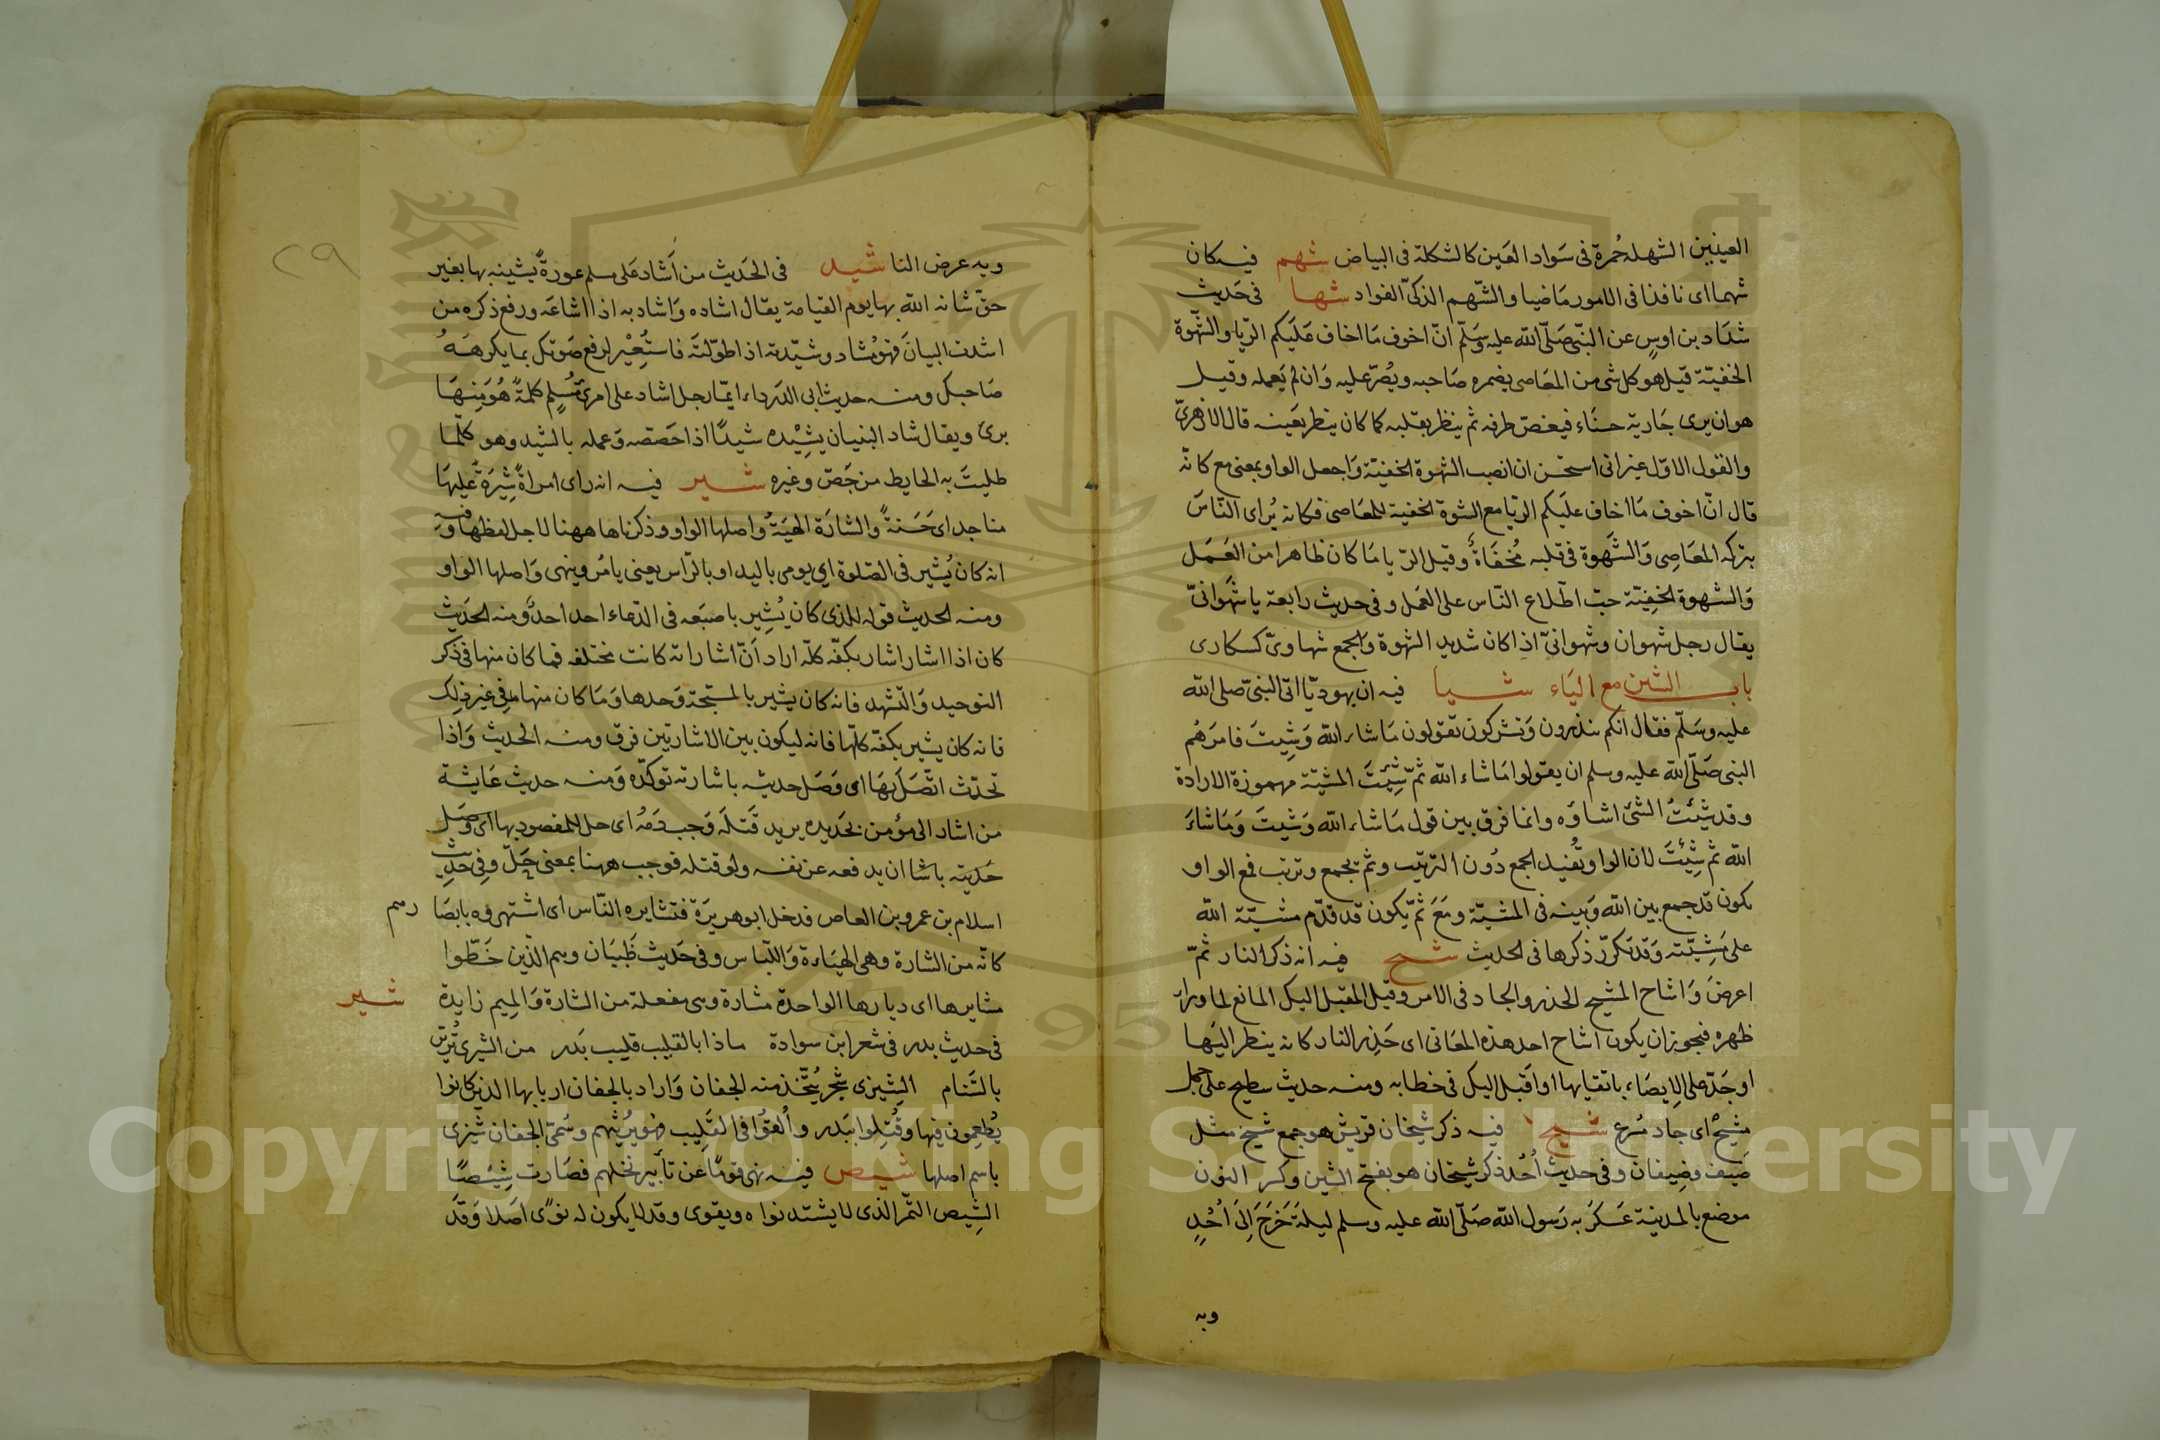 العينين الشهلة حُمرة فى سَواد العَين كالشكلة فى البياض شهم فيه كان
شهما اى نافذا فى الامور مَاضيا والشّهم الذكىّ الفواد شها فى حَديث
شدّاد بن اوسٍ عن النبّى صَلّى الله عليه وسَلّم انّ اخوف مَا اخاف عَلَيكم الرّيا والشّهوة
الخفيّة قيل هو كل شى من المعَاصى يضمره صَاحبه ويُصرّ عليه وَان لم يَعمله وقيل
هو ان يرى جَارية حسنَاء فيغضّ طرفه ثم ينظر بقلبه كما كان ينظر بعَينه قال الازهرىّ
والقول الاوّل غير انى استحسن ان انصب الشهوة الخفيّة وَاجعل الواو بمعنى مع كانّه
قال انّ اخوف مَا اخاف عليَكم الريّا مع الشهوة الخفية للمعَاصى فكانه يُراى النّاسَ
بتركه المعَاصِى وَالشَّهَوة فى قلبه مُخفَاةٌ وقيل الرّيا مَا كان ظاهرا من العَمَل
وَالشهوة الخفِيّة حبّ اطّلاع النّاس على العَمل وفى حديث رابعة يا شَهوَانىّ
يقال رجل شهوان وشهوانىّ اذا كان شديد الشهوة وَالجمع شهاوىّ كسكارى
باب الشين مع اليَاء شيا فيه ان يهوديّا اتى النبىّ صلى الله
عليه وسَلّم فقال انكم تنذرون وَتشركون تقولون مَا شاء الله وَشِيتَ فامَرَهُم
النبى صَلّى الله عليه وسلم ان يقولوا مَا شاء الله ثمّ شِئتَ المشيّة مهموزة الارادة
وقد شِئتُ الشئ اشاؤه وانما فرق بين قول مَا شاء الله وَشيتَ وَمَا شاءَ
الله ثم شِئتَ لان الواو تُفيد الجمع دُون الترتيب وثمّ تجمع وترتب فمع الواو
يكون قد جمع بين الله وَبينه فى المشيّة ومَعَ ثمّ يكون قد قدّم مشيّة الله
على مَشِيّته وَقد تكرّر ذكرها فى الحديث شيح فيه انه ذكر النار ثمّ
اعرضَ وَاشاح المشيح الحذر والجاد فى الامر وقيل المقبل اليك المانع لما وراء
ظهره فيجوز ان يكون اشاح احد هذه المعَانى اى حَذِر النار كانه ينظر اليَها
او جَدّ على الايصَاء باتقايها او اقبَل اليك فى خطابه ومنه حديث سطيح على جمل
مشيحْ اى جاد مُسرع شيخ فيه ذكر شيخان قريش هو جمع شيخ مثل
ضَيف وضِيفان وفى حديث اُحُد ذكر شيخان هو بفتح الشين وكسر النون
موضع بالمدينة عَسكرَ به رَسول الله صَلّى الله عليه وسلم ليلة خَرَجَ اِلىَ اُحُدٍ
وبه
٢٩
وبه عرض الناس شيد فى الحَديث من اَشاد عَلى مسلم عورةً يشينه بها بغير
حقّ شانه الله بها يوم القيامة يقال اشاده وَاشاد به اذا اشاعَه ورفع ذكره من
اشدت البيانَ فهوَ مُشاد وشيّدته اذا طوّلتَه فاستُعِيْر لرفع صَوتك بما يكرهَهُ
صَاحبك ومنه حديث ابى الدَرداء ايمّا رجل اشاد على امرئ مُسلِم كلمةً هُوَ مِنهَا
برئ ويقال شاد البنيان يشِيْده شيدًا اذا جَصّصه وَعمله بالشيد وهو كلّما
طليتَ به الحايط من جَصّ وغيره شير فيه انه راى امراةً شِيَرَةً عَليهَا
مناجد اى حَسَنةً وَالشارَة الهَيَئَة واصلها الواو وذكرناها ههنا لاجل لفظها وفيه
انه كان يُشير فى الصّلوة اى يومى باليد او بالرّاس يعنى يامُر وينهى وَاصلها الواو
ومنه الحديث قوله للذى كان يُشِير باصبَعه فى الدّعاء احد احدْ ومنه الحَديث
كان اذا اشار اشار بكفّه كلّه اراد اَنّ اشاراته كانت مختلفه فما كان منها فى ذكر
التوحيد وَالتّشهد فانه كان يشير بالمسَبّحة وَحدها وَمَا كان منها فى غير ذلك
فانه كان يشير بكفّه كلّها فانه ليكون بين الاشارتين فرق ومنه الحديث وَاذا
تحدّث اتّصَلَ بَهَا اى وَصَل حديثه باشارته توكّده وَمنه حديث عَايشة
من اشاد الى مؤمن بحَديده يريد قَتلَه وَجب دَمُه اى حل للمقصود بها اى وَصَل
حَديثه باشا ان يدفعه عن نفسه ولو قتله فوجب ههنا بمعنى حَلّ وفى حَديث
اسلام بن عمرو بن العاص فدخل ابو هريرَة فتشايره النّاس اى اشتهروه بابصَا رهم
كانّه من الشارة وهى الهيَاءة وَاللّباس وفى حَديث ظَبيَان وهم الّذين خَطّوا
مشايرها اى ديارها الواحدة مشارة وهى مفعلة من الشارة وَالمِيم زايدة شير
فى حديث بدر فى شعر ابن سوادة ماذا بالقليب قليب بَدر من الشيزى تُزيّن
بالسّنام الشِيزى شجر يُتّخذ منه الجفان وَاراد بالجفان اربابها الذين كانوا
يُطعِمون فيها وقُتِلوا ببَدر واُلقوُا فى القَلِيب فهوَ يُرثيهم وسُمىّ الجفان شِيزى
باسم اصلها شيص فيه نهى قومًا عَن تأبير نخلهم فصَارت شِيَصًا
الشِيص التّمر الذى لا يشتد نواه ويقوى وقد لا يكون له نوًى اَصَلا وَقد